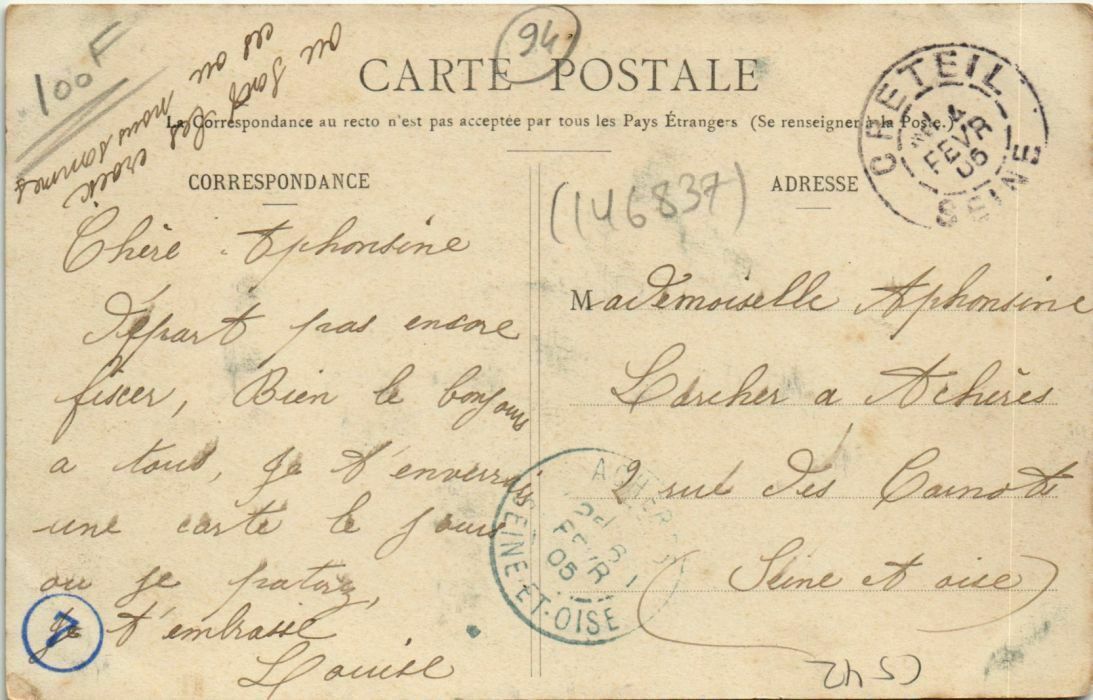 100F
94
CARTE POSTALE
La Correspondance au recto n'est pas acceptée par tous les Pays Étrangers (Se renseigner à la Poste.)
CRETEIL
4
FEVR
05
SEINE
ou sont les
croix
es ou nous sommes
CORRESPONDANCE
(146837)
ADRESSE
Chère Aphonsine
Départ pas encore
fiscer, Bien le bonjour
a tous, Je t'enverrais
une carte le jours
ou je partirez,
Je t'embrasse
Louise
Mademoiselle Aphonsine
Larcher a Achères
2 rue des Carnots
(Seine et oise)
ACHERES
6
FEVR
05
SEINE-ET-OISE